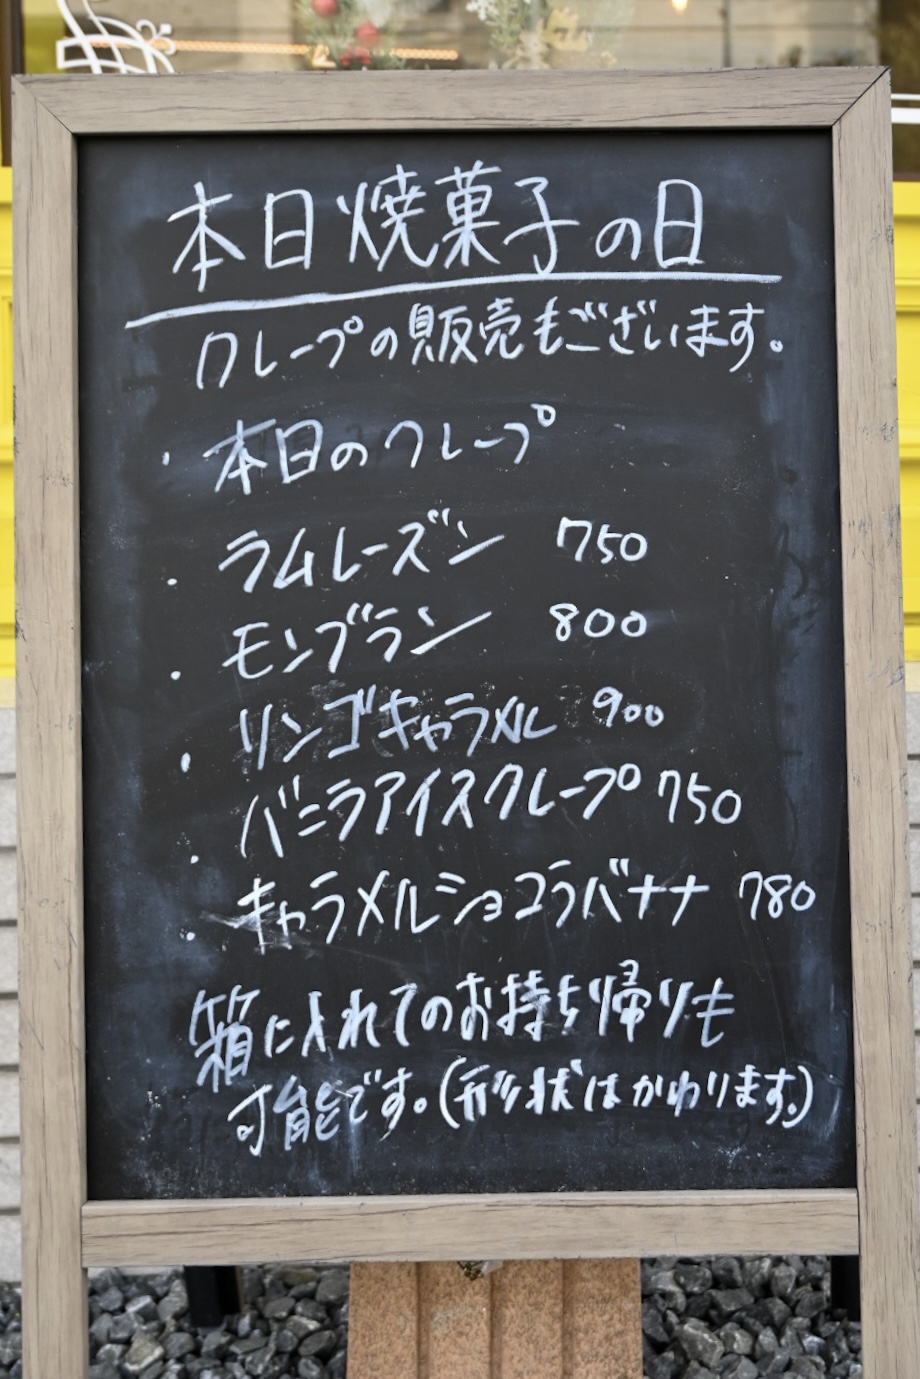 本日焼菓子の日
クレープの販売もございます。
・本日のクレープ
・ラムレーズン 750
・モンブラン 800
・リンゴキャラメル 900
・バニラアイスクレープ 750
・キャラメルショコラバナナ 780
箱に入れてのお持ち帰りも
可能です。(形状はかわります。)